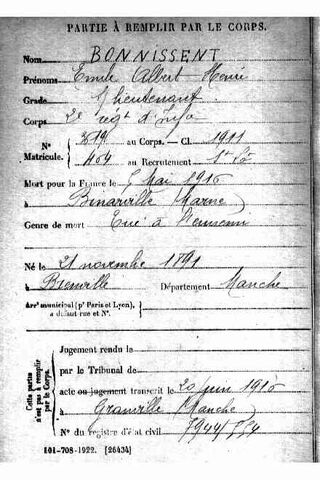 PARTIE À REMPLIR PAR LE CORPS.
Nom BONNISSENT
Prénoms Emile Albert Henri
Grade S/ lieutenant
Corps 2e régt d'Infie
Nº 319 au Corps. — Cl. 1911
Matricule. 464 au Recrutement St Lô
Mort pour la France le 5 Mai 1916
à Binarville (Marne)
Genre de mort Tué à l'ennemi
Né le 21 novembre 1891
à Département Manche
Arrt municipal (pr Paris et Lyon),
à défaut rue et Nº.
Cette partie n'est pas à remplir par le Corps.
Jugement rendu le
par le Tribunal de
acte ou jugement transcrit le 20 juin 1916
à Granville (Manche)
Nº du registre d'état civil
101-708-1922. [26434]